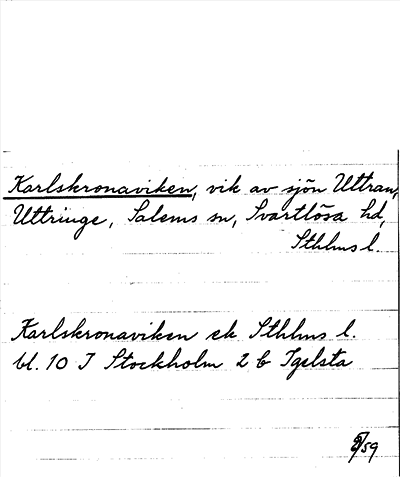 Karlskronaviken, vik av sjön Uttran,
Uttringe, Salems sn, Svartlösa hd,
Sthlms l.
Karlskronaviken ek Sthlms l.
bl. 10 I Stockholm 2 b Igelsta
/59